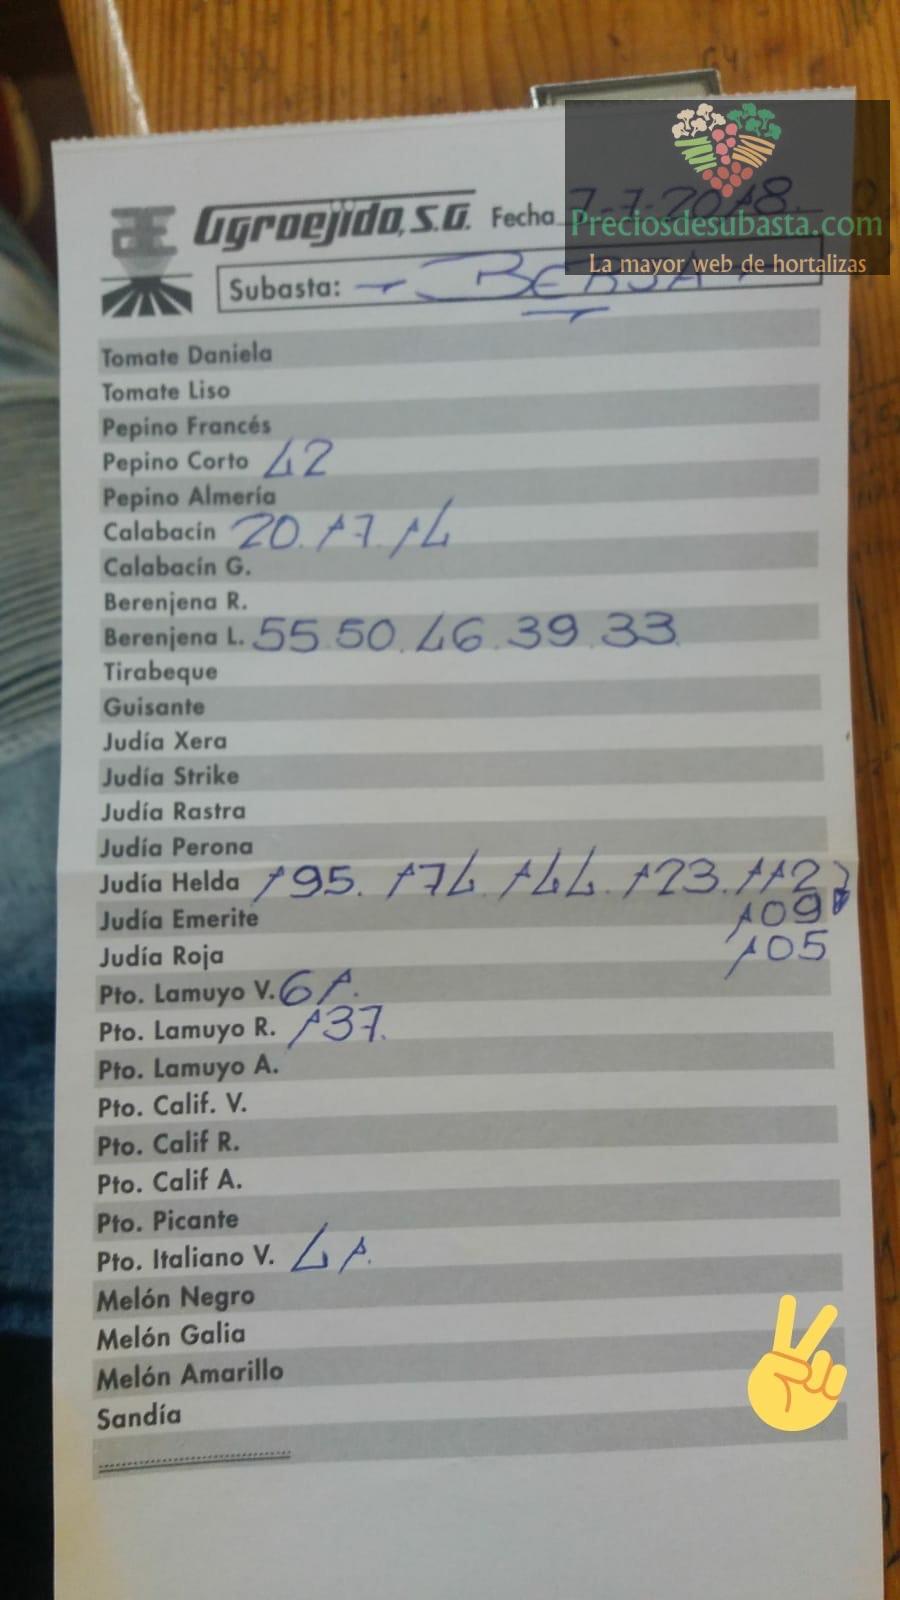 Agroejido, S.A. Fecha 7-7-2018
Preciosdesubasta.com
La mayor web de hortalizas
Subasta: - BERJA -
Tomate Daniela
Tomate Liso
Pepino Francés
Pepino Corto 42
Pepino Almería
Calabacín 20. 17. 14
Calabacín G.
Berenjena R.
Berenjena L. 55 50. 46. 39. 33.
Tirabeque
Guisante
Judía Xera
Judía Strike
Judía Rastra
Judía Perona
Judía Helda 195. 174. 144. 123. 112
Judía Emerite 109
Judía Roja 105
Pto. Lamuyo V. 61.
Pto. Lamuyo R. 137.
Pto. Lamuyo A.
Pto. Calif. V.
Pto. Calif R.
Pto. Calif A.
Pto. Picante
Pto. Italiano V. 41.
Melón Negro
Melón Galia
Melón Amarillo
Sandía